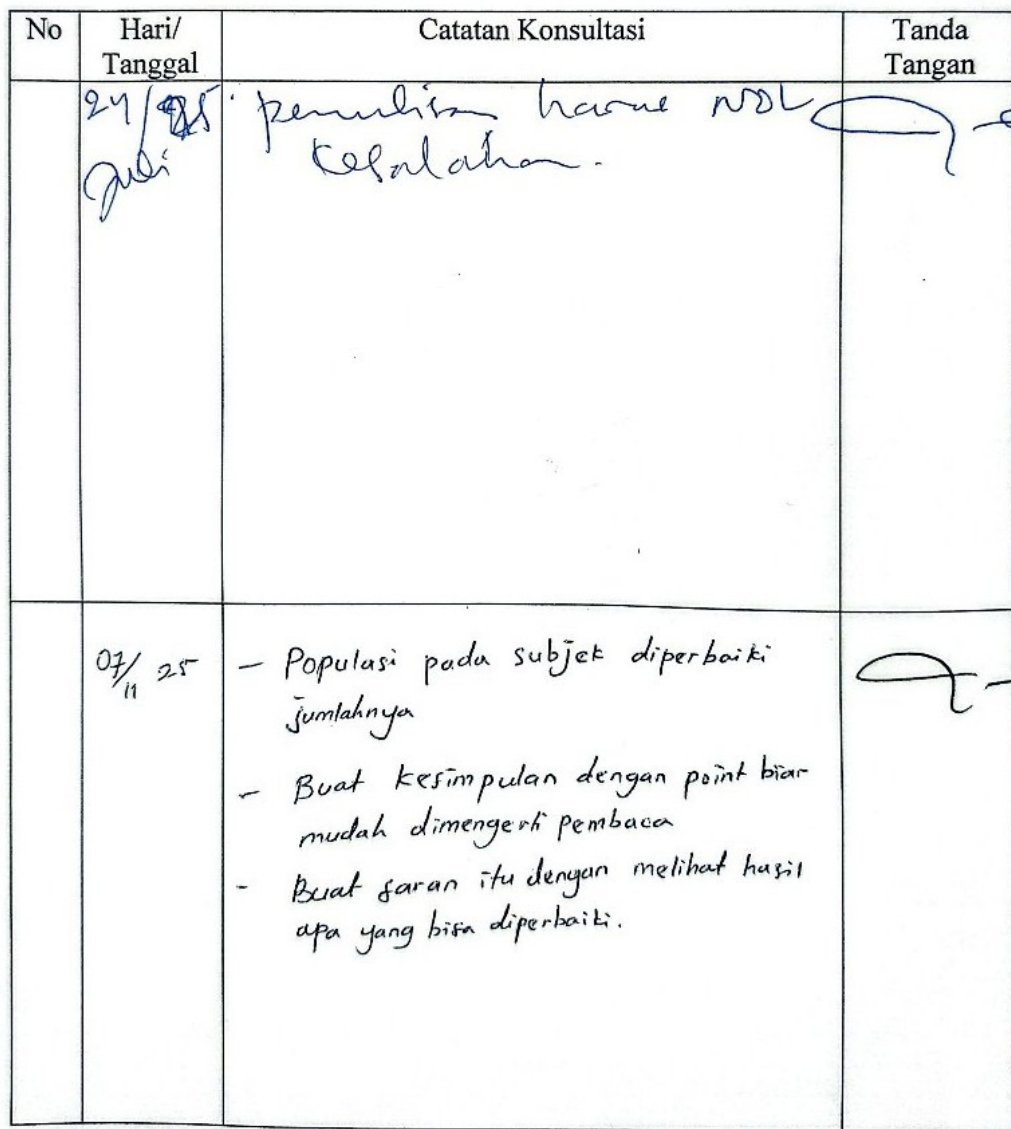 No Hari/ Catatan Konsultasi Tanda
Tanggal Tangan
24/25 penulisan harus NOL
Juli kesalahan.
07/11 25 - Populasi pada subjek diperbaiki
jumlahnya
- Buat kesimpulan dengan point biar
mudah dimengerti pembaca
- Buat saran itu dengan melihat hasil
apa yang bisa diperbaiki.